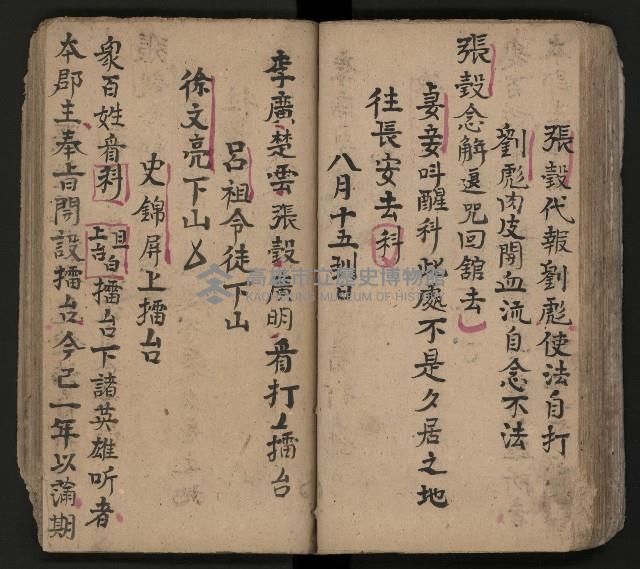 張殼代報劉彪使法自打
劉彪肉皮開血流自念不法
張殼念解退咒回舘去
妻妾叫醒科此處不是久居之地
往長安去科
八月十五到日
李廣楚雲張殼廣明看打上擂台
呂祖令徒下山
徐文亮下山
史錦屏上擂台
衆百姓看科 旦上台白擂台下諸英雄听者
本郡主奉旨開設擂台今已一年以滿期
高雄市立歷史博物館
KAOHSIUNG MUSEUM OF HISTORY